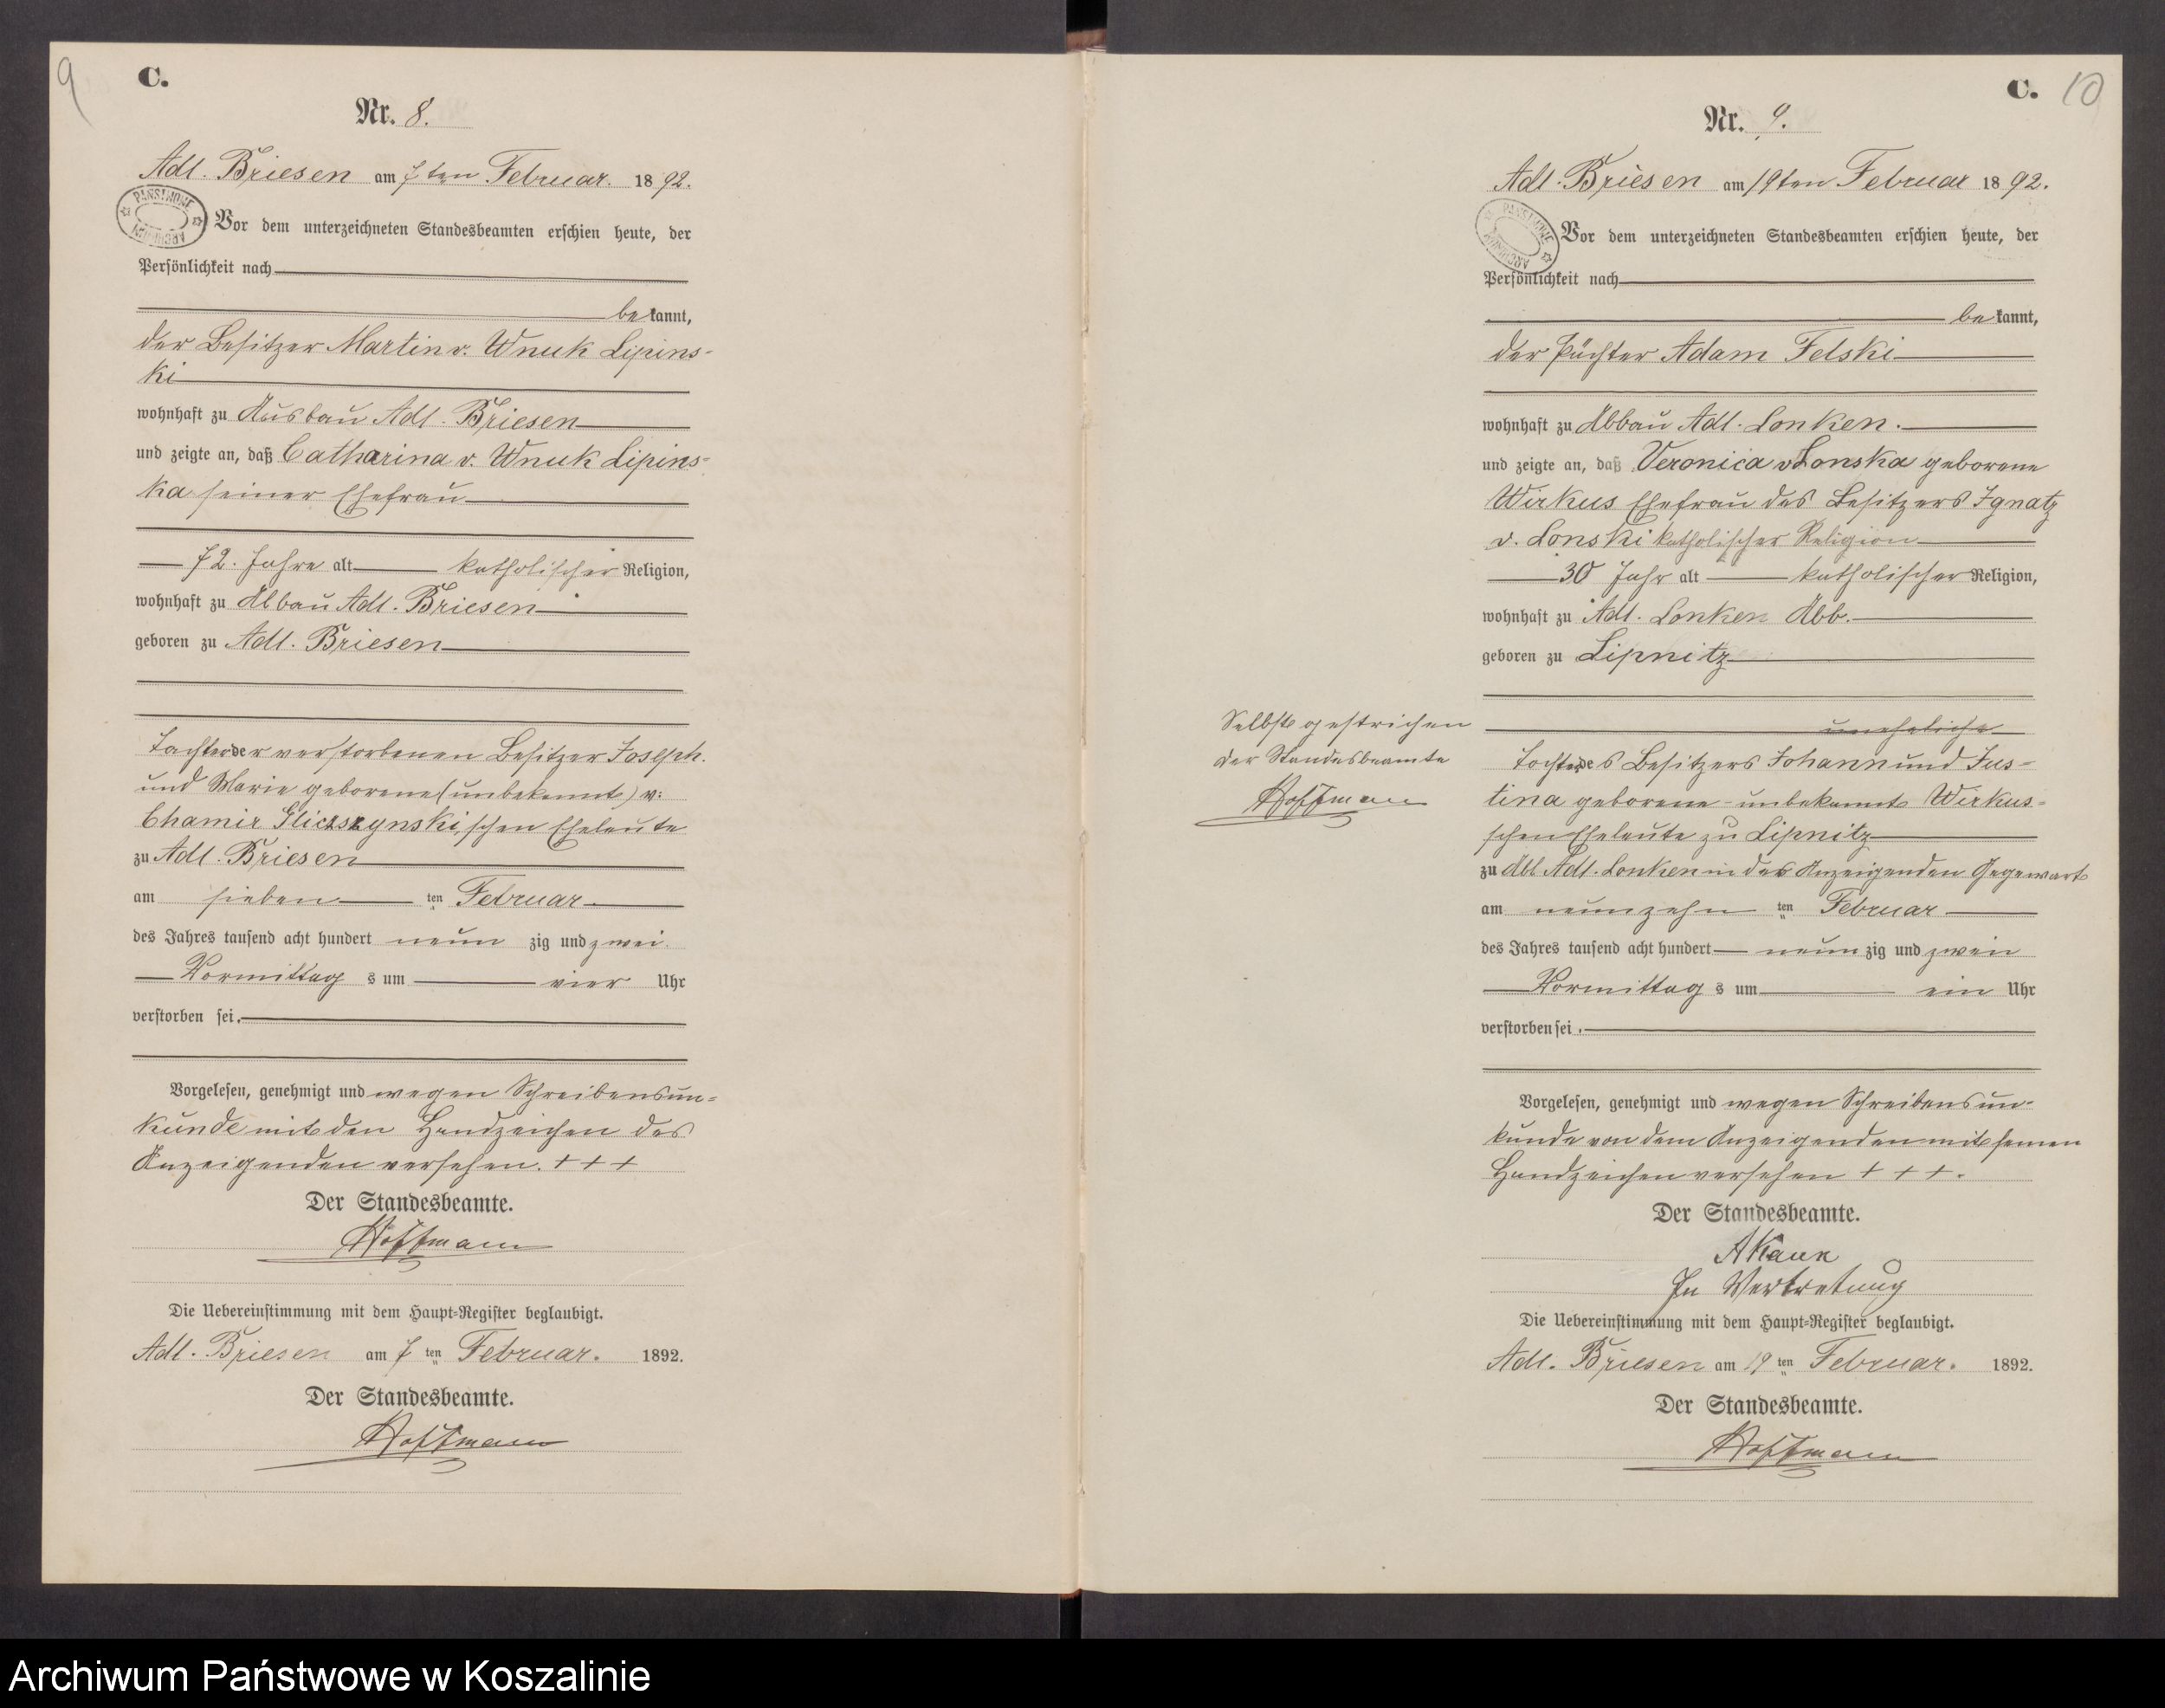 9
C.
Nr. 8.
Adl. Briesen am 7ten Februar. 1892.
Vor dem unterzeichneten Standesbeamten erschien heute, der
Persönlichkeit nach
bekannt,
der Besitzer Martin v. Wnuk Lipins-
ki
wohnhaft zu Ausbau Adl. Briesen
und zeigte an, daß Catharina v. Wnuk Lipins-
ka seiner Ehefrau
72. Jahre alt katholischer Religion,
wohnhaft zu Abbau Adl. Briesen
geboren zu Adl. Briesen
Tochter der verstorbenen Besitzer Joseph.
und Marie geborene (unbekannt) v:
Chamir Gliczszynski,schen Eheleute
zu Adl. Briesen
am sieben ten Februar
des Jahres tausend acht hundert neun zig und zwei.
Vormittag s um vier Uhr
verstorben sei.
Vorgelesen, genehmigt und wegen Schreibensun-
kunde mit den Handzeichen des
Anzeigenden versehen. + + +
Der Standesbeamte.
Hoffmann
Die Uebereinstimmung mit dem Haupt-Register beglaubigt.
Adl. Briesen am 7 ten Februar. 1892.
Der Standesbeamte.
Hoffmann
C. 10
Nr. 9.
Adl. Briesen am 19ten Februar 1892.
PAŃSTWOWE ARCHIWUM
Vor dem unterzeichneten Standesbeamten erschien heute, der
Persönlichkeit nach
bekannt,
der Pächter Adam Felski
wohnhaft zu Abbau Adl. Lonken.
und zeigte an, daß Veronica v Lonska geborene
Wirkus Ehefrau des Besitzers Ignatz
v. Lonski katholischer Religion
30 Jahr alt katholischer Religion,
wohnhaft zu Adl. Lonken Abb.
geboren zu Lipnitz
uneheliche
Selbst gestrichen
der Standesbeamte
Hoffmann
Tochter des Besitzers Johann und Jus-
tina geborene - unbekannt Wirkus-
schen Eheleute zu Lipnitz
zu Abb Adl. Lonken in des Anzeigenden Gegenwart
am neunzehn ten Februar
des Jahres tausend acht hundert neun zig und zwei
Vormittag s um ein Uhr
verstorben sei.
Vorgelesen, genehmigt und wegen Schreibensun-
kunde von dem Anzeigenden mit seinen
Handzeichen versehen + + +.
Der Standesbeamte.
In Vertretung
Die Uebereinstimmung mit dem Haupt-Register beglaubigt.
Adl. Briesen am 19 ten Februar. 1892.
Der Standesbeamte.
Hoffmann
Archiwum Państwowe w Koszalinie